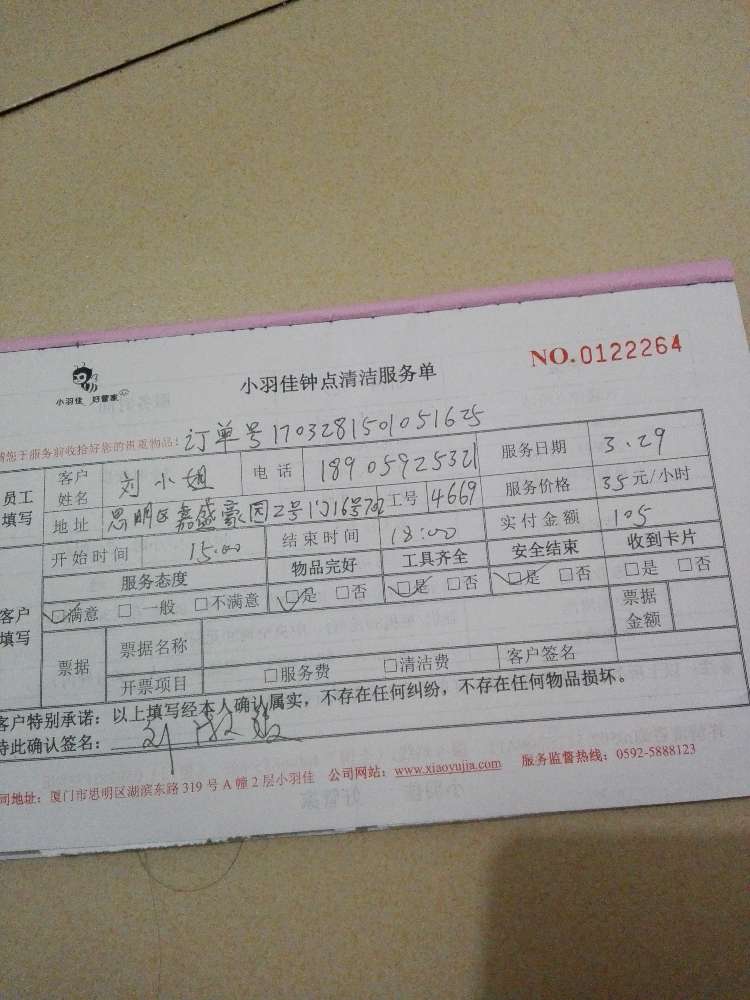 小羽佳 好管家
小羽佳钟点清洁服务单
NO.0122264
您于服务前收拾好您的贵重物品：订单号1703281501051625
员工填写 客户姓名 刘小姐 电话 18905925321 服务日期 3.29
地址 思明区嘉盛豪园2号门16号702 工号 4669 服务价格 35元/小时
开始时间 15:00 结束时间 18:00 实付金额 105
客户填写 服务态度 物品完好 工具齐全 安全结束 收到卡片
☑满意 □一般 □不满意 ☑是 □否 ☑是 □否 ☑是 □否 □是 □否
票据 票据名称 票据金额
开票项目 □服务费 □清洁费 客户签名
客户特别承诺：以上填写经本人确认属实，不存在任何纠纷，不存在任何物品损坏。
特此确认签名：刘
司地址：厦门市思明区湖滨东路319号A幢2层小羽佳 公司网站：www.xiaoyujia.com 服务监督热线：0592-5888123